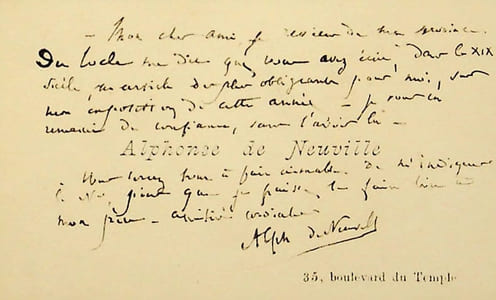 — Mon cher ami, je reviens de ma province.
Du Locle me dit que vous avez écrit, dans le XIX
siècle, un article des plus obligeants pour moi, sur
mon exposition de cette année — je vous en
remercie de confiance, sans l'avoir lu —
Alphonse de Neuville
vous serez tout à fait aimable de m'indiquer
le No, pour que je puisse le faire lire à
mon père — amitiés cordiales
Alph de Neuville
35, boulevard du Temple